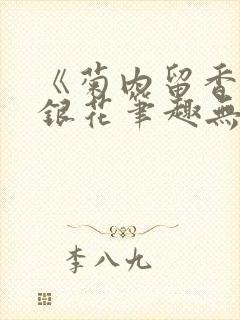 《菊内留香
銀花筆趣無
李八九